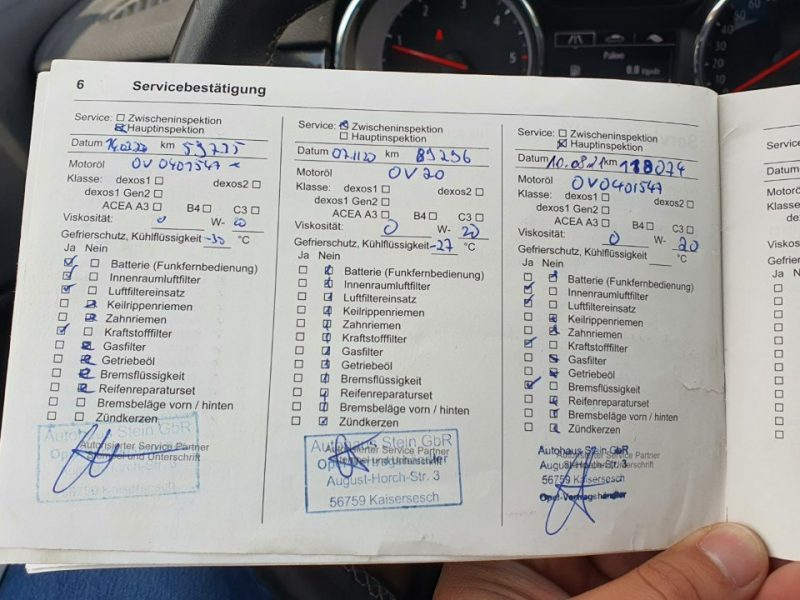 6 Servicebestätigung
Service: Zwischeninspektion
Hauptinspektion
Datum 14.02.20 km 53735
Motoröl OV0401547
Klasse: dexos1 dexos2
dexos1 Gen2
ACEA A3 B4 C3
Viskosität: 0 W- 20
Gefrierschutz, Kühlflüssigkeit -30 °C
Ja Nein
Batterie (Funkfernbedienung)
Innenraumluftfilter
Luftfiltereinsatz
Keilrippenriemen
Zahnriemen
Kraftstofffilter
Gasfilter
Getriebeöl
Bremsflüssigkeit
Reifenreparaturset
Bremsbeläge vorn / hinten
Zündkerzen
Autohaus Stein GbR
Autorisierter Service Partner
Stempel und Unterschrift
56759 Kaisersesch
Service: Zwischeninspektion
Hauptinspektion
Datum 02.11.20 km 89296
Motoröl OV20
Klasse: dexos1 dexos2
dexos1 Gen2
ACEA A3 B4 C3
Viskosität: 0 W- 20
Gefrierschutz, Kühlflüssigkeit -27 °C
Ja Nein
Batterie (Funkfernbedienung)
Innenraumluftfilter
Luftfiltereinsatz
Keilrippenriemen
Zahnriemen
Kraftstofffilter
Gasfilter
Getriebeöl
Bremsflüssigkeit
Reifenreparaturset
Bremsbeläge vorn / hinten
Zündkerzen
Autohaus Stein GbR
Autorisierter Service Partner
Stempel und Unterschrift
August-Horch-Str. 3
56759 Kaisersesch
Service: Zwischeninspektion
Hauptinspektion
Datum 10.08.21 km 118074
Motoröl OV0401547
Klasse: dexos1 dexos2
dexos1 Gen2
ACEA A3 B4 C3
Viskosität: 0 W- 20
Gefrierschutz, Kühlflüssigkeit °C
Ja Nein
Batterie (Funkfernbedienung)
Innenraumluftfilter
Luftfiltereinsatz
Keilrippenriemen
Zahnriemen
Kraftstofffilter
Gasfilter
Getriebeöl
Bremsflüssigkeit
Reifenreparaturset
Bremsbeläge vorn / hinten
Zündkerzen
Autohaus Stein GbR
Autorisierter Service Partner
August-Horch-Str. 3
Stempel und Unterschrift
56759 Kaisersesch
Opel-Vertragshändler